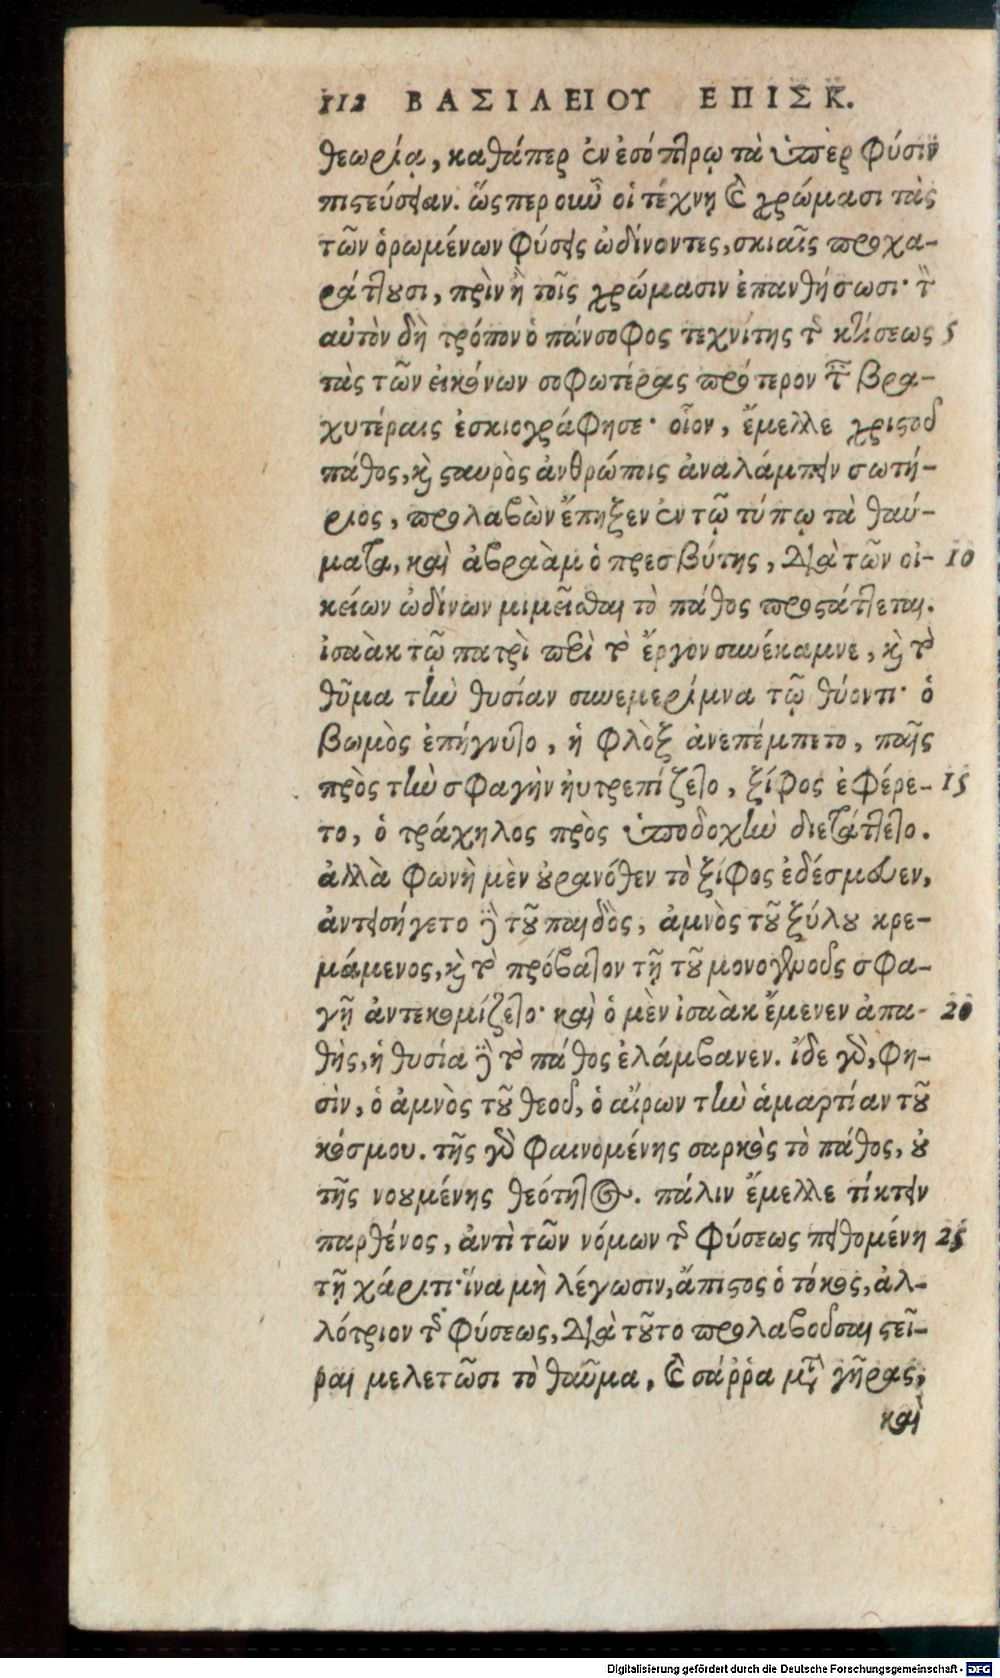 112 ΒΑΣΙΛΕΙΟΥ ΕΠΙΣΚ.
θεωρίᾳ, καθάπερ ἐν ἐσόπτρῳ τὰ ὑπὲρ φύσιν
πιστεύσειαν. ὥσπερ οὖν οἱ τέχνῃ καὶ χρώμασι τὰς
τῶν ὁρωμένων φύσεις ὠδίνοντες, σκιαῖς προχα-
ράττουσι, πρὶν ἢ τοῖς χρώμασιν ἐπανθήσωσι· τὸν
αὐτὸν δὴ τρόπον ὁ πάνσοφος τεχνίτης τῆς κτίσεως 5
τὰς τῶν εἰκόνων σοφωτέρας πρότερον ταῖς βρα-
χυτέραις ἐσκιογράφησε· οἷον, ἔμελλε χριστοῦ
πάθος, καὶ σταυρὸς ἀνθρώποις ἀναλάμπειν σωτή-
ριος, προλαβὼν ἔπηξεν ἐν τῷ τύπῳ τὰ θαύ-
ματα, καὶ ἀβραὰμ ὁ πρεσβύτης, διὰ τῶν οἰ- 10
κείων ὠδίνων μιμεῖσθαι τὸ πάθος προστάττεται.
ἰσαὰκ τῷ πατρὶ περὶ τὸ ἔργον συνέκαμνε, καὶ τὸ
θῦμα τὴν θυσίαν συνεμερίμνα τῷ θύοντι· ὁ
βωμὸς ἐπήγνυτο, ἡ φλὸξ ἀνεπέμπετο, παῖς
πρὸς τὴν σφαγὴν ηὐτρεπίζετο, ξίφος ἐφέρε- 15
το, ὁ τράχηλος πρὸς ὑποδοχὴν διετάττετο.
ἀλλὰ φωνὴ μὲν οὐρανόθεν τὸ ξίφος ἐδέσμευεν,
ἀντεισήγετο δὲ τοῦ παιδὸς, ἀμνὸς τοῦ ξύλου κρε-
μάμενος, καὶ τὸ πρόβατον τῇ τοῦ μονογενοῦς σφα-
γῇ ἀντεκομίζετο· καὶ ὁ μὲν ἰσαὰκ ἔμενεν ἀπα- 20
θὴς, ἡ θυσία δὲ τὸ πάθος ἐλάμβανεν. ἴδε γὰρ, φη-
σὶν, ὁ ἀμνὸς τοῦ θεοῦ, ὁ αἴρων τὴν ἁμαρτίαν τοῦ
κόσμου. τῆς γὰρ φαινομένης σαρκὸς τὸ πάθος, οὐ
τῆς νουμένης θεότητος. πάλιν ἔμελλε τίκτειν
παρθένος, ἀντὶ τῶν νόμων τῆς φύσεως πειθομένη 25
τῇ χάριτι· ἵνα μὴ λέγωσιν, ἄπιστος ὁ τόκος, ἀλ-
λότριον τῆς φύσεως, διὰ τοῦτο προλαβοῦσαι στεῖ-
ραι μελετῶσι τὸ θαῦμα, καὶ σάῤῥα μετὰ γῆρας,
καὶ
Digitalisierung gefördert durch die Deutsche Forschungsgemeinschaft - DFG